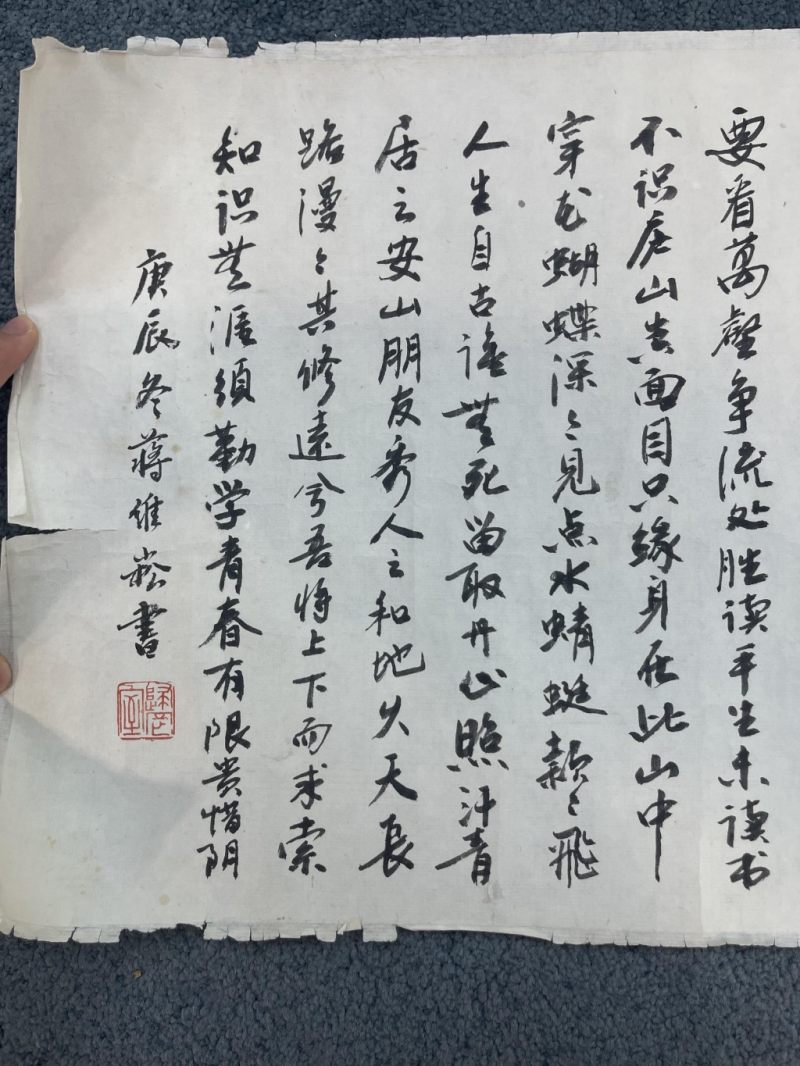 要看萬壑争流处胜读平生未读书
不识庐山真面目只緣身在此山中
穿花蝴蝶深々見点水蜻蜓款々飛
人生自古誰無死留取丹心照汗青
居之安山朋友秀人之和地久天長
路漫々其修遠兮吾将上下而求索
知识無涯須勤学青春有限貴惜阴
庚辰冬蒋維崧書